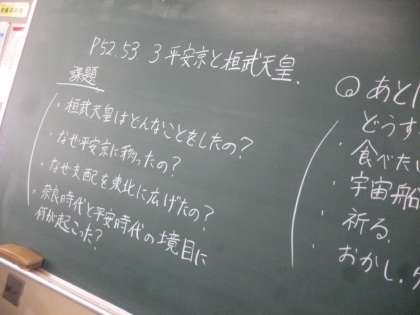 P52.53 3 平安京と桓武天皇.
課題
・桓武天皇はどんなことをしたの？
・なぜ平安京に移ったの？
・なぜ支配を東北に広げたの？
・奈良時代と平安時代の境目に
何が起こった？
あと
どうす
食べたい
・宇宙船
・祈る.
・おかし.